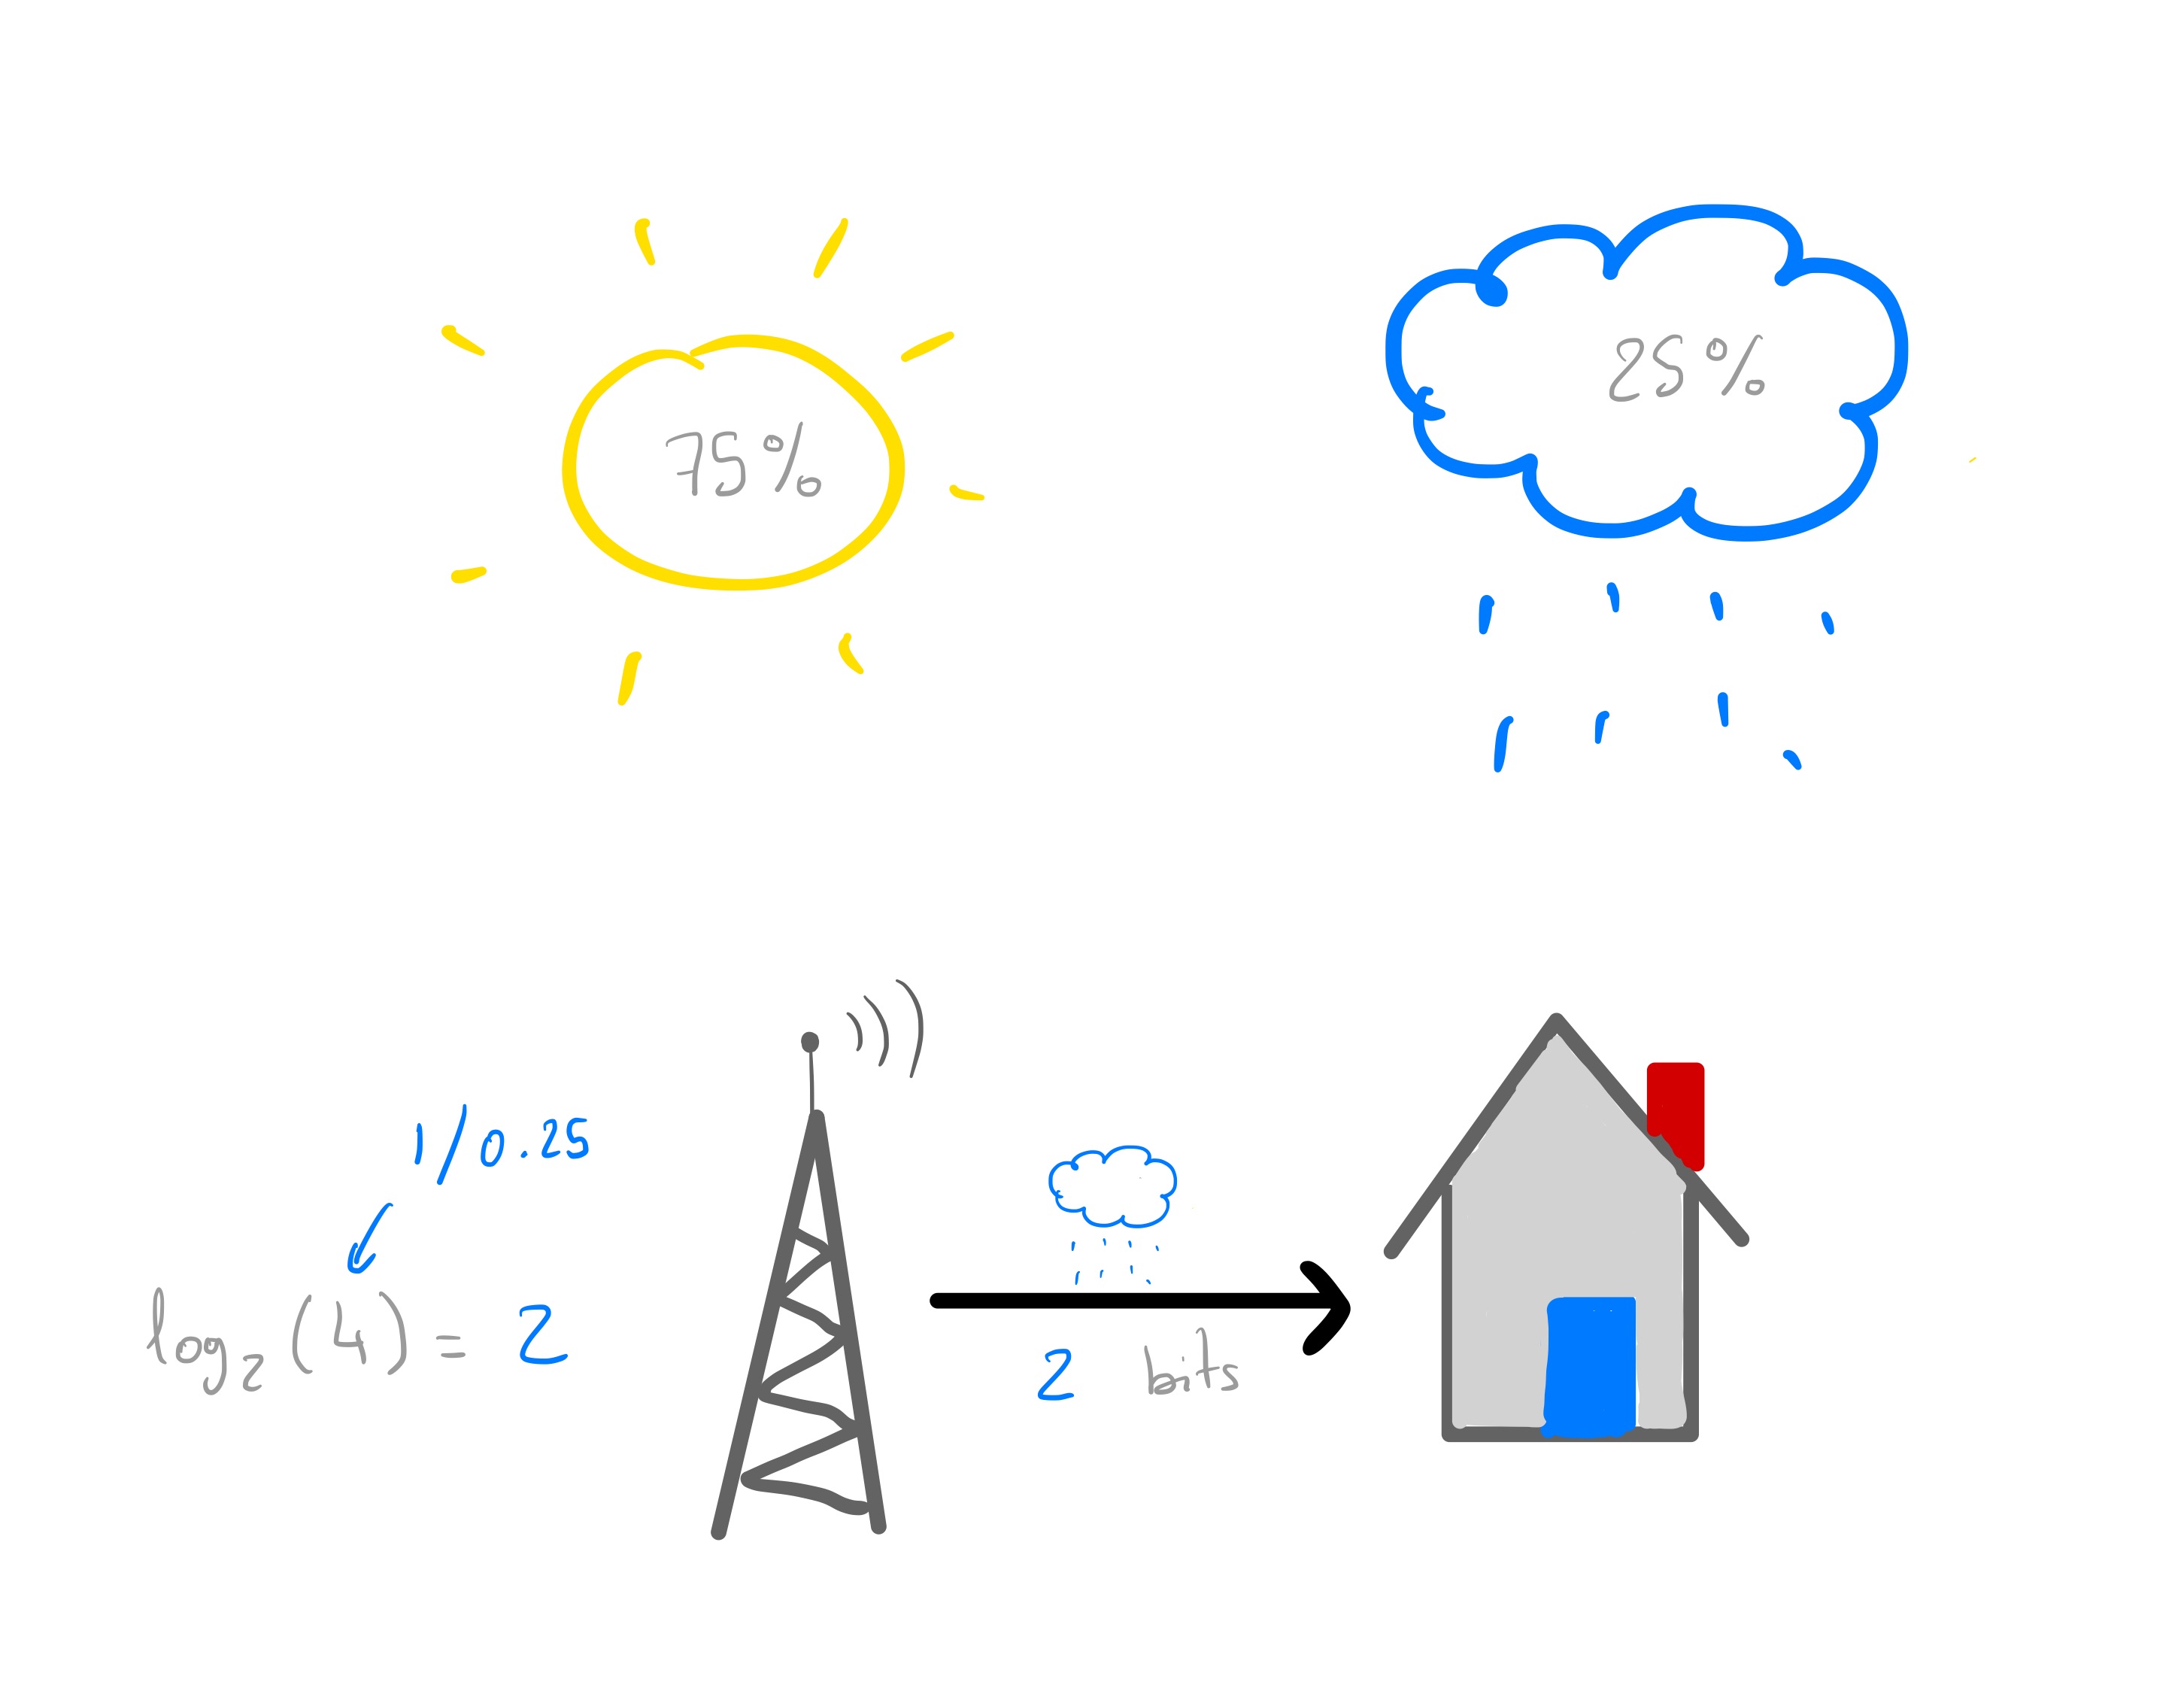 75%
25%
1/0.25
log₂(4) = 2
2 bits